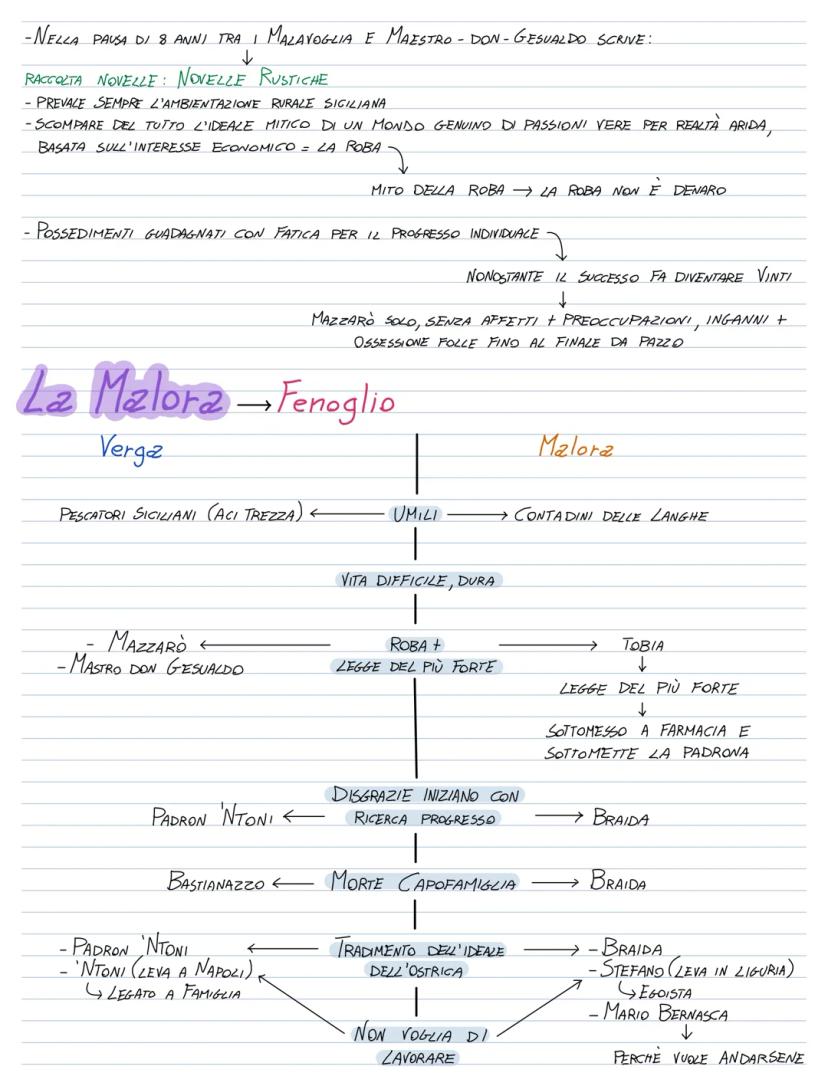 - NELLA PAUSA DI 8 ANNI TRA I MALAVOGLIA E MAESTRO - DON - GESUALDO SCRIVE:
↓
RACCOLTA NOVELLE: NOVELLE RUSTICHE
- PREVALE SEMPRE L'AMBIENTAZIONE RURALE SICILIANA
- SCOMPARE DEL TUTTO L'IDEALE MITICO DI UN MONDO GENUINO DI PASSIONI VERE PER REALTÀ ARIDA,
BASATA SULL'INTERESSE ECONOMICO = LA ROBA
MITO DELLA ROBA → LA ROBA NON È DENARO
- POSSEDIMENTI GUADAGNATI CON FATICA PER IL PROGRESSO INDIVIDUALE
NONOSTANTE IL SUCCESSO FA DIVENTARE VINTI
↓
MAZZARÒ SOLO, SENZA AFFETTI + PREOCCUPAZIONI, INGANNI +
OSSESSIONE FOLLE FINO AL FINALE DA PAZZO
La Malora → Fenoglio
Verga Malora
PESCATORI SICILIANI (ACI TREZZA) ← UMILI → CONTADINI DELLE LANGHE
VITA DIFFICILE, DURA
- MAZZARÒ ← ROBA + → TOBIA
- MASTRO DON GESUALDO LEGGE DEL PIÙ FORTE ↓
LEGGE DEL PIÙ FORTE
↓
SOTTOMESSO A FARMACIA E
SOTTOMETTE LA PADRONA
DISGRAZIE INIZIANO CON
PADRON 'NTONI ← RICERCA PROGRESSO → BRAIDA
BASTIANAZZO ← MORTE CAPOFAMIGLIA → BRAIDA
- PADRON 'NTONI ← TRADIMENTO DELL'IDEALE → - BRAIDA
- 'NTONI (LEVA A NAPOLI) DELL'OSTRICA - STEFANO (LEVA IN LIGURIA)
↳ LEGATO A FAMIGLIA ↳ EGOISTA
- MARIO BERNASCA
NON VOGLIA DI ↓
LAVORARE PERCHÈ VUOLE ANDARSENE